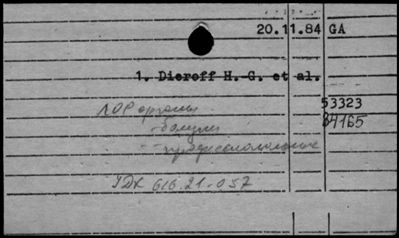 20.11.84 GA
1. Dieroff H.-G. et al.
ЛОР органы 53323
- болезни 34165
- профессиональные
УДК 616.21-057